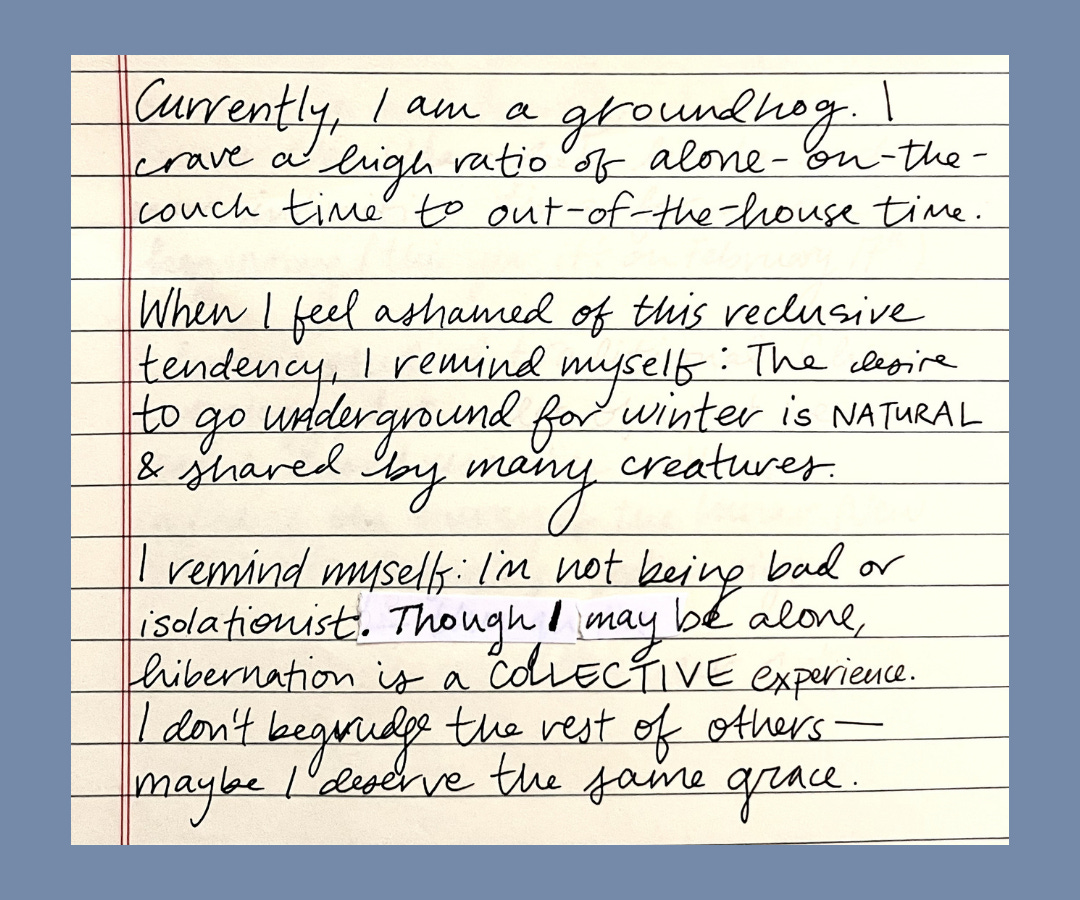 Currently, I am a groundhog. I
crave a high ratio of alone-on-the-
couch time to out-of-the-house time.
When I feel ashamed of this reclusive
tendency, I remind myself: The desire
to go underground for winter is NATURAL
& shared by many creatures.
I remind myself: I'm not being bad or
isolationist. Though I may be alone,
hibernation is a COLLECTIVE experience.
I don't begrudge the rest of others—
maybe I deserve the same grace.